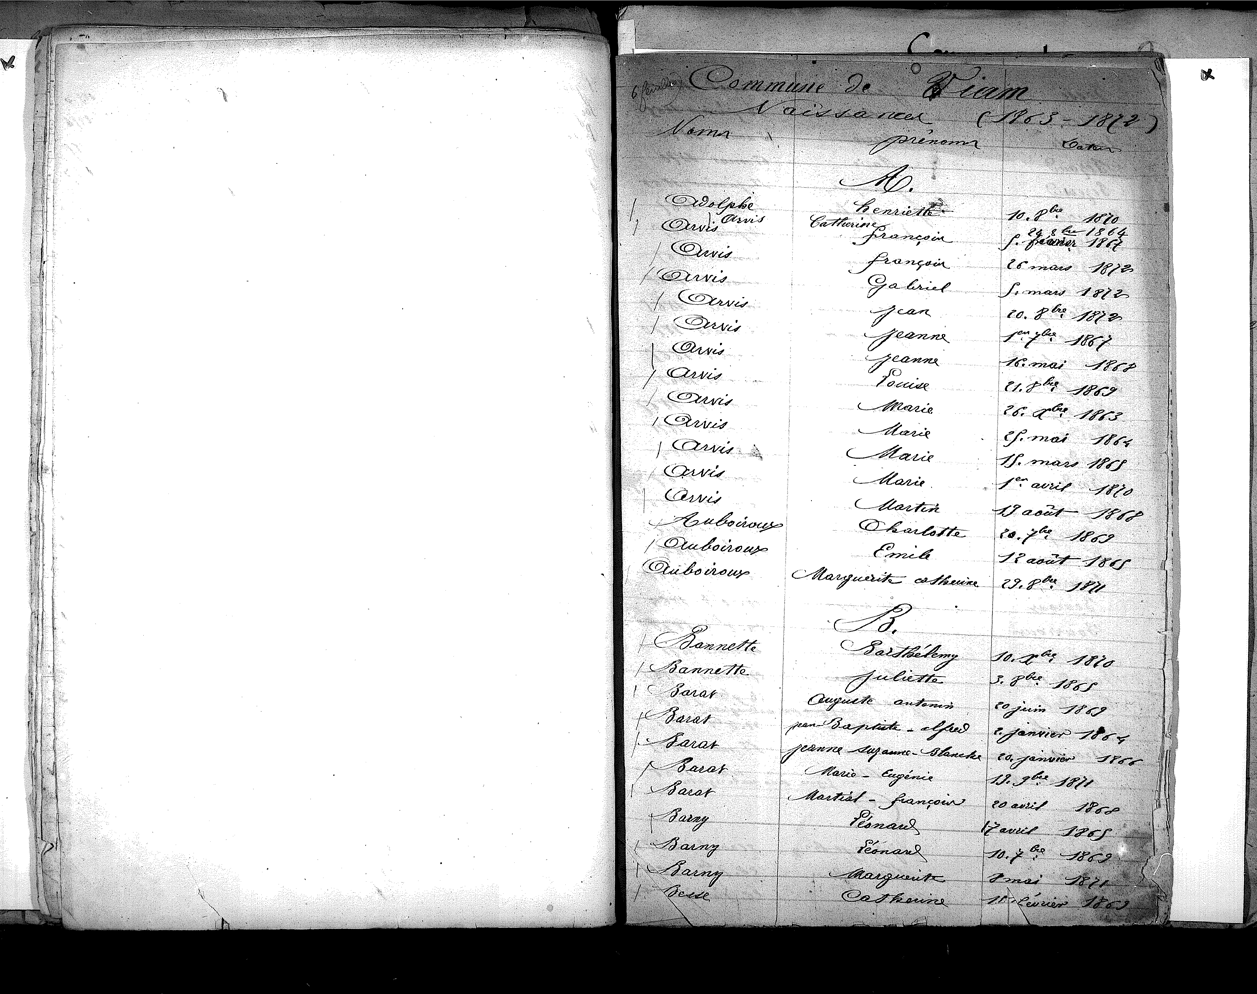 Commune de Viam
Naissances (1863-1872)
Noms prénoms Dates
A.
Adolphe henriette 10. 8bre 1870
Arvis Catherine 24 8bre 1864
Arvis françois 5. février 1867
Arvis françois 26 mars 1872
Arvis Gabriel 5. mars 1872
Arvis jean 20. 8bre 1872
Arvis jeanne 1er 7bre 1867
Arvis jeanne 16. mai 1868
Arvis Louise 21. 8bre 1869
Arvis Marie 26. Xbre 1863
Arvis Marie 25. mai 1864
Arvis Marie 15. mars 1865
Arvis Marie 1er avril 1870
Arvis Martin 19 août 1868
Auboiroux Charlotte 20. 7bre 1869
Auboiroux Emile 12 août 1865
Auboiroux Marguerite catherine 29. 8bre 1871
B.
Bannette Barthélemy 10. Xbre 1870
Bannette juliette 3. 8bre 1865
Barat Auguste antonin 20 juin 1869
Barat jean-Baptiste-alfred 2. janvier 1864
Barat jeanne suzanne-Blanche 20. janvier 1866
Barat Marie-Eugénie 19. 9bre 1871
Barat Martial-françois 20 avril 1868
Barny Léonard 17 avril 1865
Barny Léonard 10. 7bre 1869
Barny Marguerite 8 mai 1871
Besse Catherine février 1869